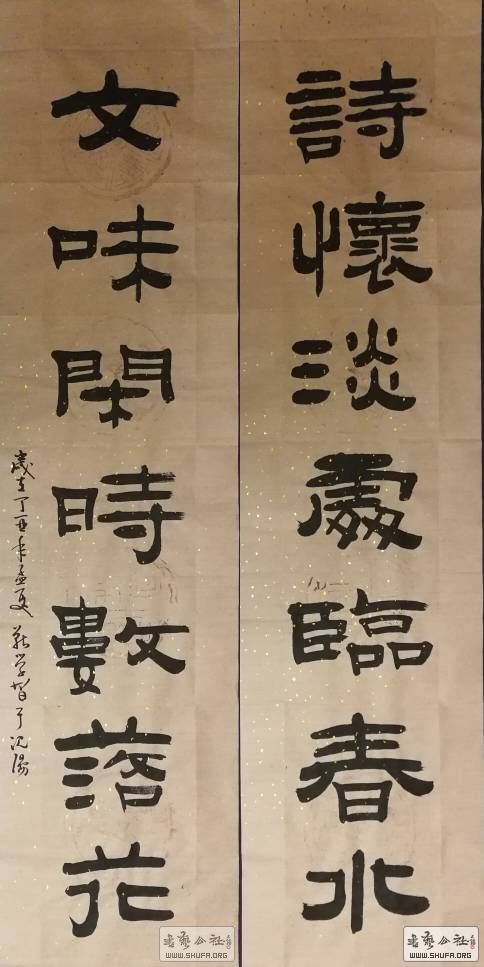 詩懷淡處臨春水
文味閑時數落花
歲在丁丑年孟夏 學智于沈陽
書藝公社
WWW.SHUFA.ORG
書藝公社
WWW.SHUFA.ORG